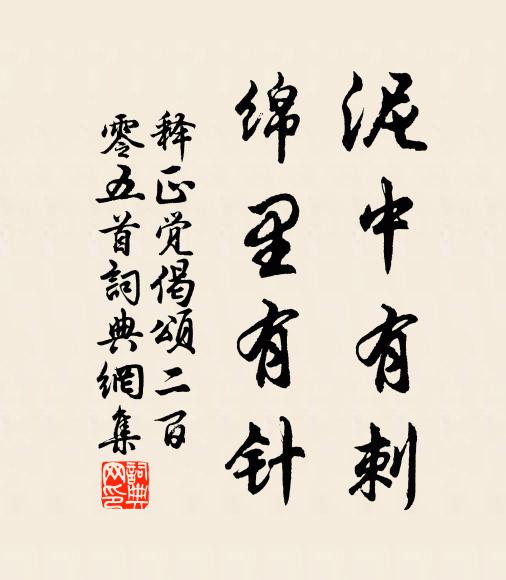 泥中有刺
绵里有针
释正觉偈頌二百
零五首詞典網集
詞典
网印